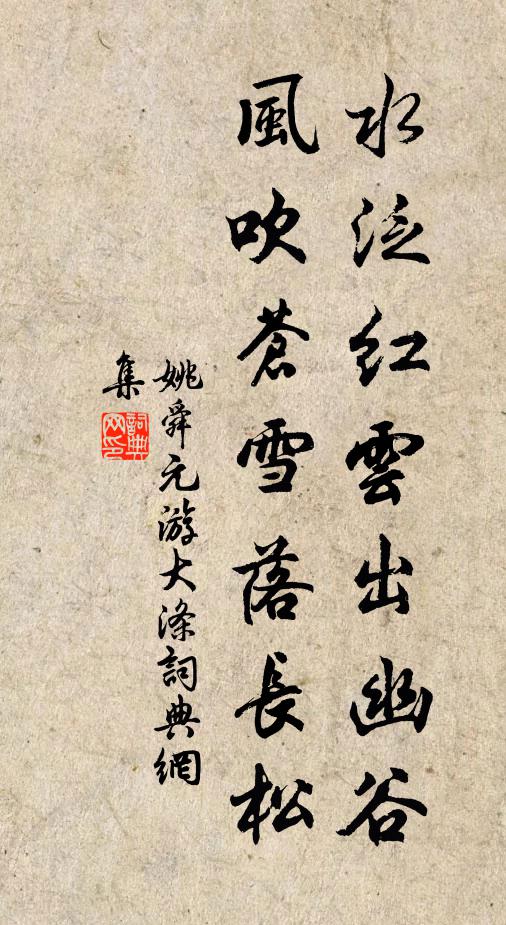 水泛紅雲出幽谷
風吹蒼雪落長松
姚舜元游大滌詞典網
集
詞典
网印